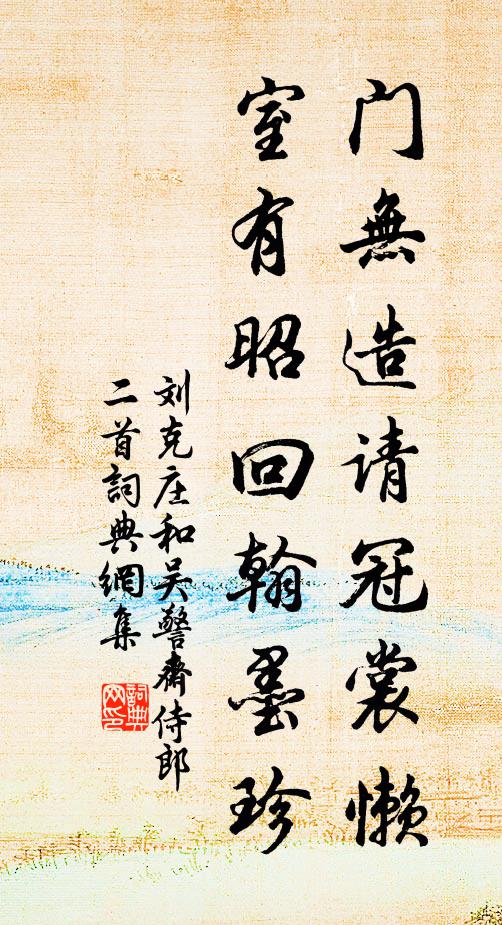 门無造请冠裳懒
室有昭回翰墨珍
刘克庄和吴警斋侍郎
二首詞典網集
詞典網印